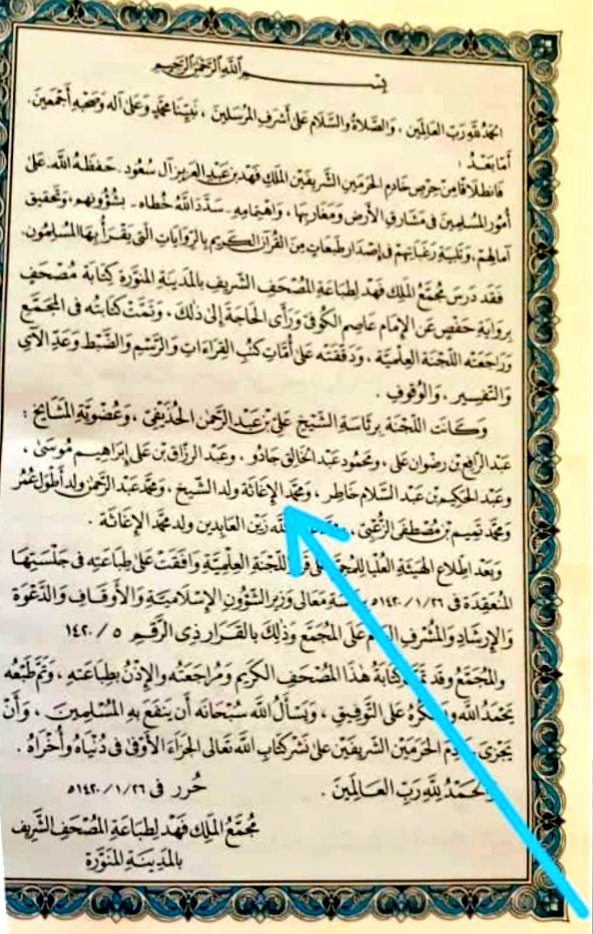 بسم الله الرحمن الرحيم
الحمد لله رب العالمين ، والصلاة والسلام على أشرف المرسلين ، نبينا محمد وعلى آله وصحبه أجمعين .
أما بعد :
فانطلاقا من حرص خادم الحرمين الشريفين الملك فهد بن عبد العزيز آل سعود - حفظه الله - على
أمور المسلمين في مشارق الأرض ومغاربها ، واهتمامه - سدد الله خطاه - بشؤونهم ، وتحقيق
آمالهم ، وتلبية رغباتهم في إصدار طبعات من القرآن الكريم بالروايات التي يقرأ بها المسلمون .
فقد درس مجمع الملك فهد لطباعة المصحف الشريف بالمدينة المنورة كتابة مصحف
برواية حفص عن الإمام عاصم الكوفي ورأى الحاجة إلى ذلك ، وتمت كتابته في المجمع
وراجعته اللجنة العلمية ، ودققته على أمات كتب القراءات والرسم والضبط وعد الآي
والتفسير ، والوقوف .
وكانت اللجنة برئاسة الشيخ علي بن عبد الرحمن الحذيفي ، وعضوية المشايخ :
عبد الرافع بن رضوان علي ، ومحمود عبد الخالق جادو ، وعبد الرزاق بن علي إبراهيم موسى ،
وعبد الحكيم بن عبد السلام خاطر ، ومحمد الإغاثة ولد الشيخ ، ومحمد عبد الرحمن ولد أطول عمر
ومحمد تميم بن مصطفى الزعبي ، الله زين العابدين ولد محمد الإغاثة .
وبعد اطلاع الهيئة العليا للمجمع على اللجنة العلمية وافقت على طباعته في جلستها
المنعقدة في ١٤٢٠/١/٢٦ه معالي وزير الشؤون الإسلامية والأوقاف والدعوة
والإرشاد والمشرف العام على المجمع وذلك بالقرار ذي الرقم ٥ / ١٤٢٠
والمجمع وقد تمت كتابة هذا المصحف الكريم ومراجعته والإذن بطباعته ، وتم طبعه
يحمد الله ويشكره على التوفيق ، ويسأل الله سبحانه أن ينفع به المسلمين ، وأن
يجزي خادم الحرمين الشريفين على نشر كتاب الله تعالى الجزاء الأوفى في دنياه وأخراه .
والحمد لله رب العالمين . حرر في ١٤٢٠/١/٢٦ه
مجمع الملك فهد لطباعة المصحف الشريف
بالمدينة المنورة